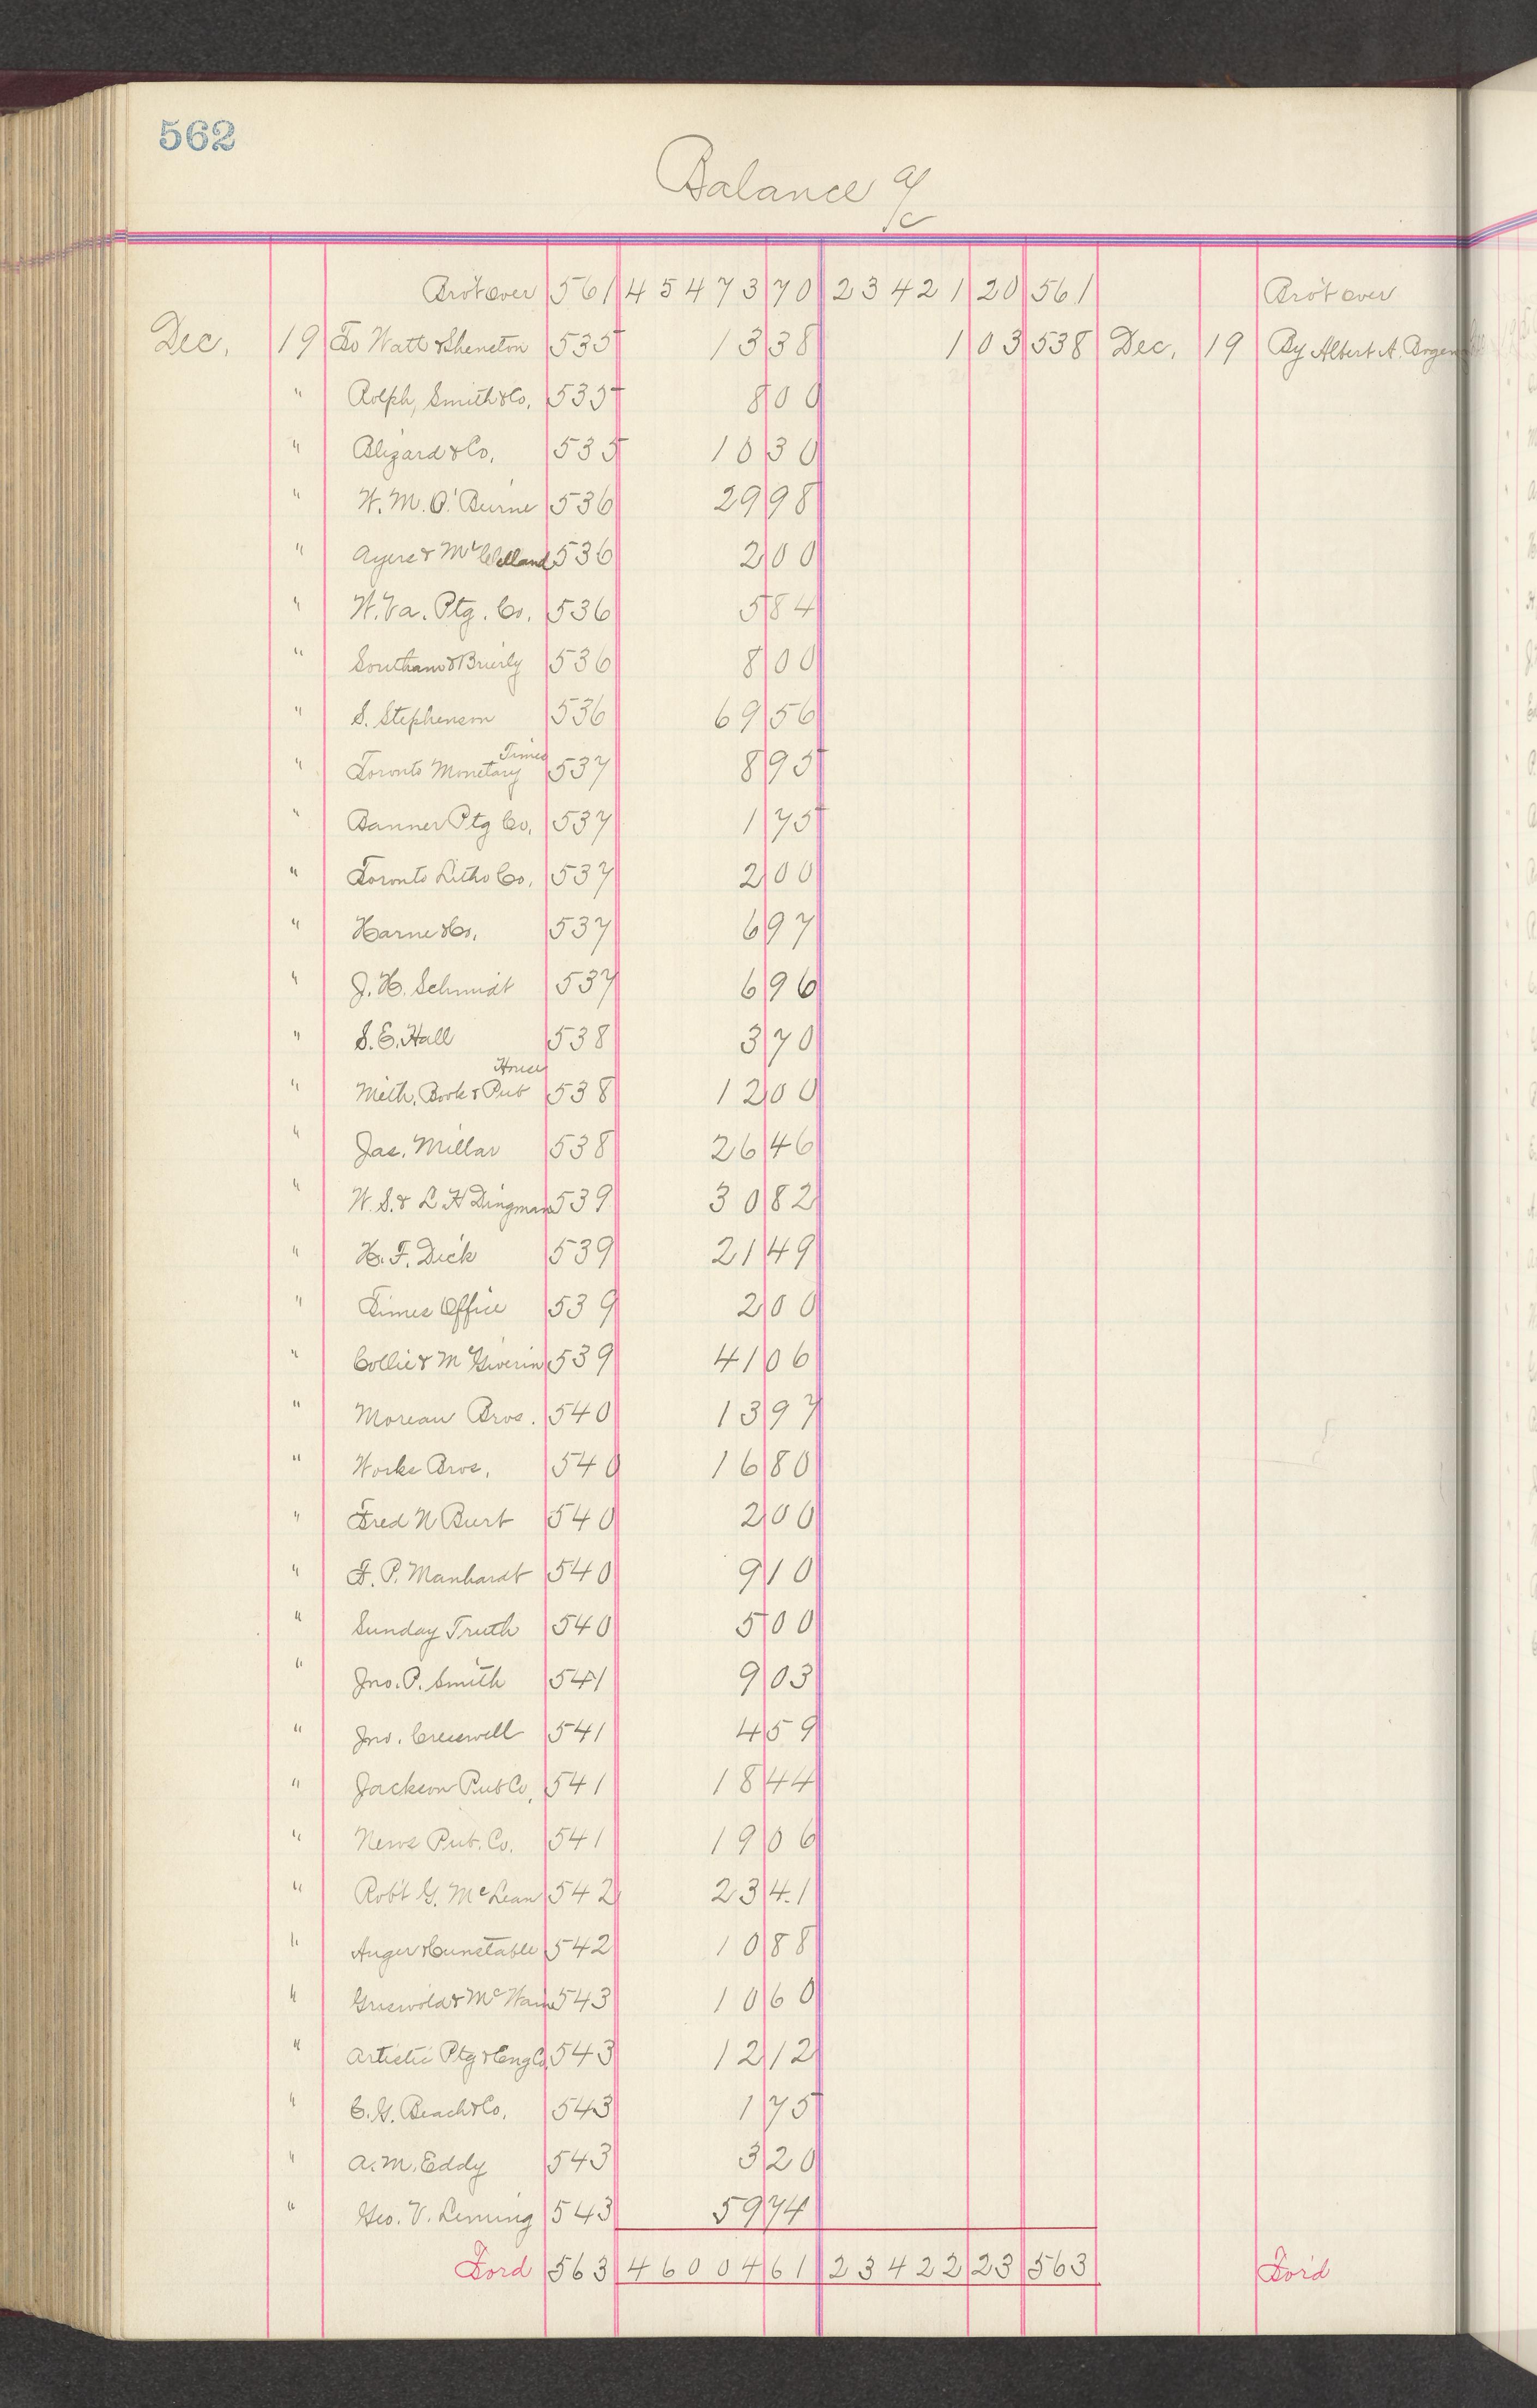 562
Balance a/c
Bro't over 561 45473 70 23421 20 561 Bro't over
Dec. 19 To Watt & Shenston 535 13 38 1 03 538 Dec. 19 By Albert A.
" Rolph, Smith & Co, 535 8 00
" Blizard & Co, 535 10 30
" W. M. O'Burne 536 29 98
" Ayers & McClelland 536 2 00
" W. Va. Ptg. Co, 536 5 84
" Southam & Brierly 536 8 00
" S. Stephenson 536 69 56
" Toronto Monetary Times 537 8 95
" Banner Ptg Co, 537 1 75
" Toronto Litho Co, 537 2 00
" Harne & Co, 537 6 97
" J. H. Schmidt 537 6 96
" S. E. Hall 538 3 70
" Meth, Book & Pub House 538 12 00
" Jas. Millar 538 26 46
" W. S. & L H Dingman 539 30 82
" H. F. Dick 539 21 49
" Times Office 539 2 00
" Collie & McGiverin 539 41 06
" Moreau Bros. 540 13 97
" Works Bros, 540 16 80
" Fred N Burt 540 2 00
" F. P. Manhardt 540 9 10
" Sunday Truth 540 5 00
" Jno. P. Smith 541 9 03
" Jno. Creswell 541 4 59
" Jackson Pub Co, 541 18 44
" News Pub. Co. 541 19 06
" Rob't G. McLean 542 23 41
" Auger & Cunstable 542 10 88
" Griswold & McWain 543 10 60
" Artistic Ptg & Eng Co 543 12 12
" C. G. Beach & Co, 543 1 75
" A. M. Eddy 543 3 20
" Geo. V. Leming 543 59 74
For'd 563 46004 61 23422 23 563 For'd